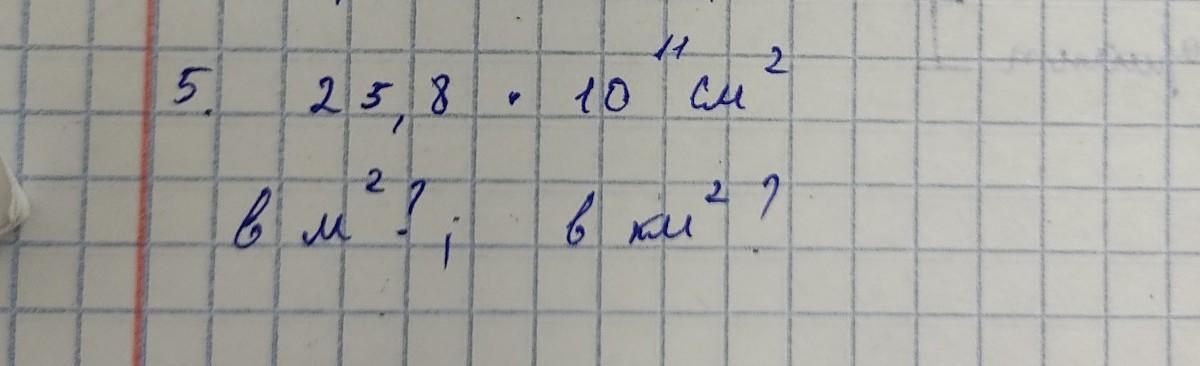 5. 25,8 · 10¹¹ см²
в м² ?; в км² ?